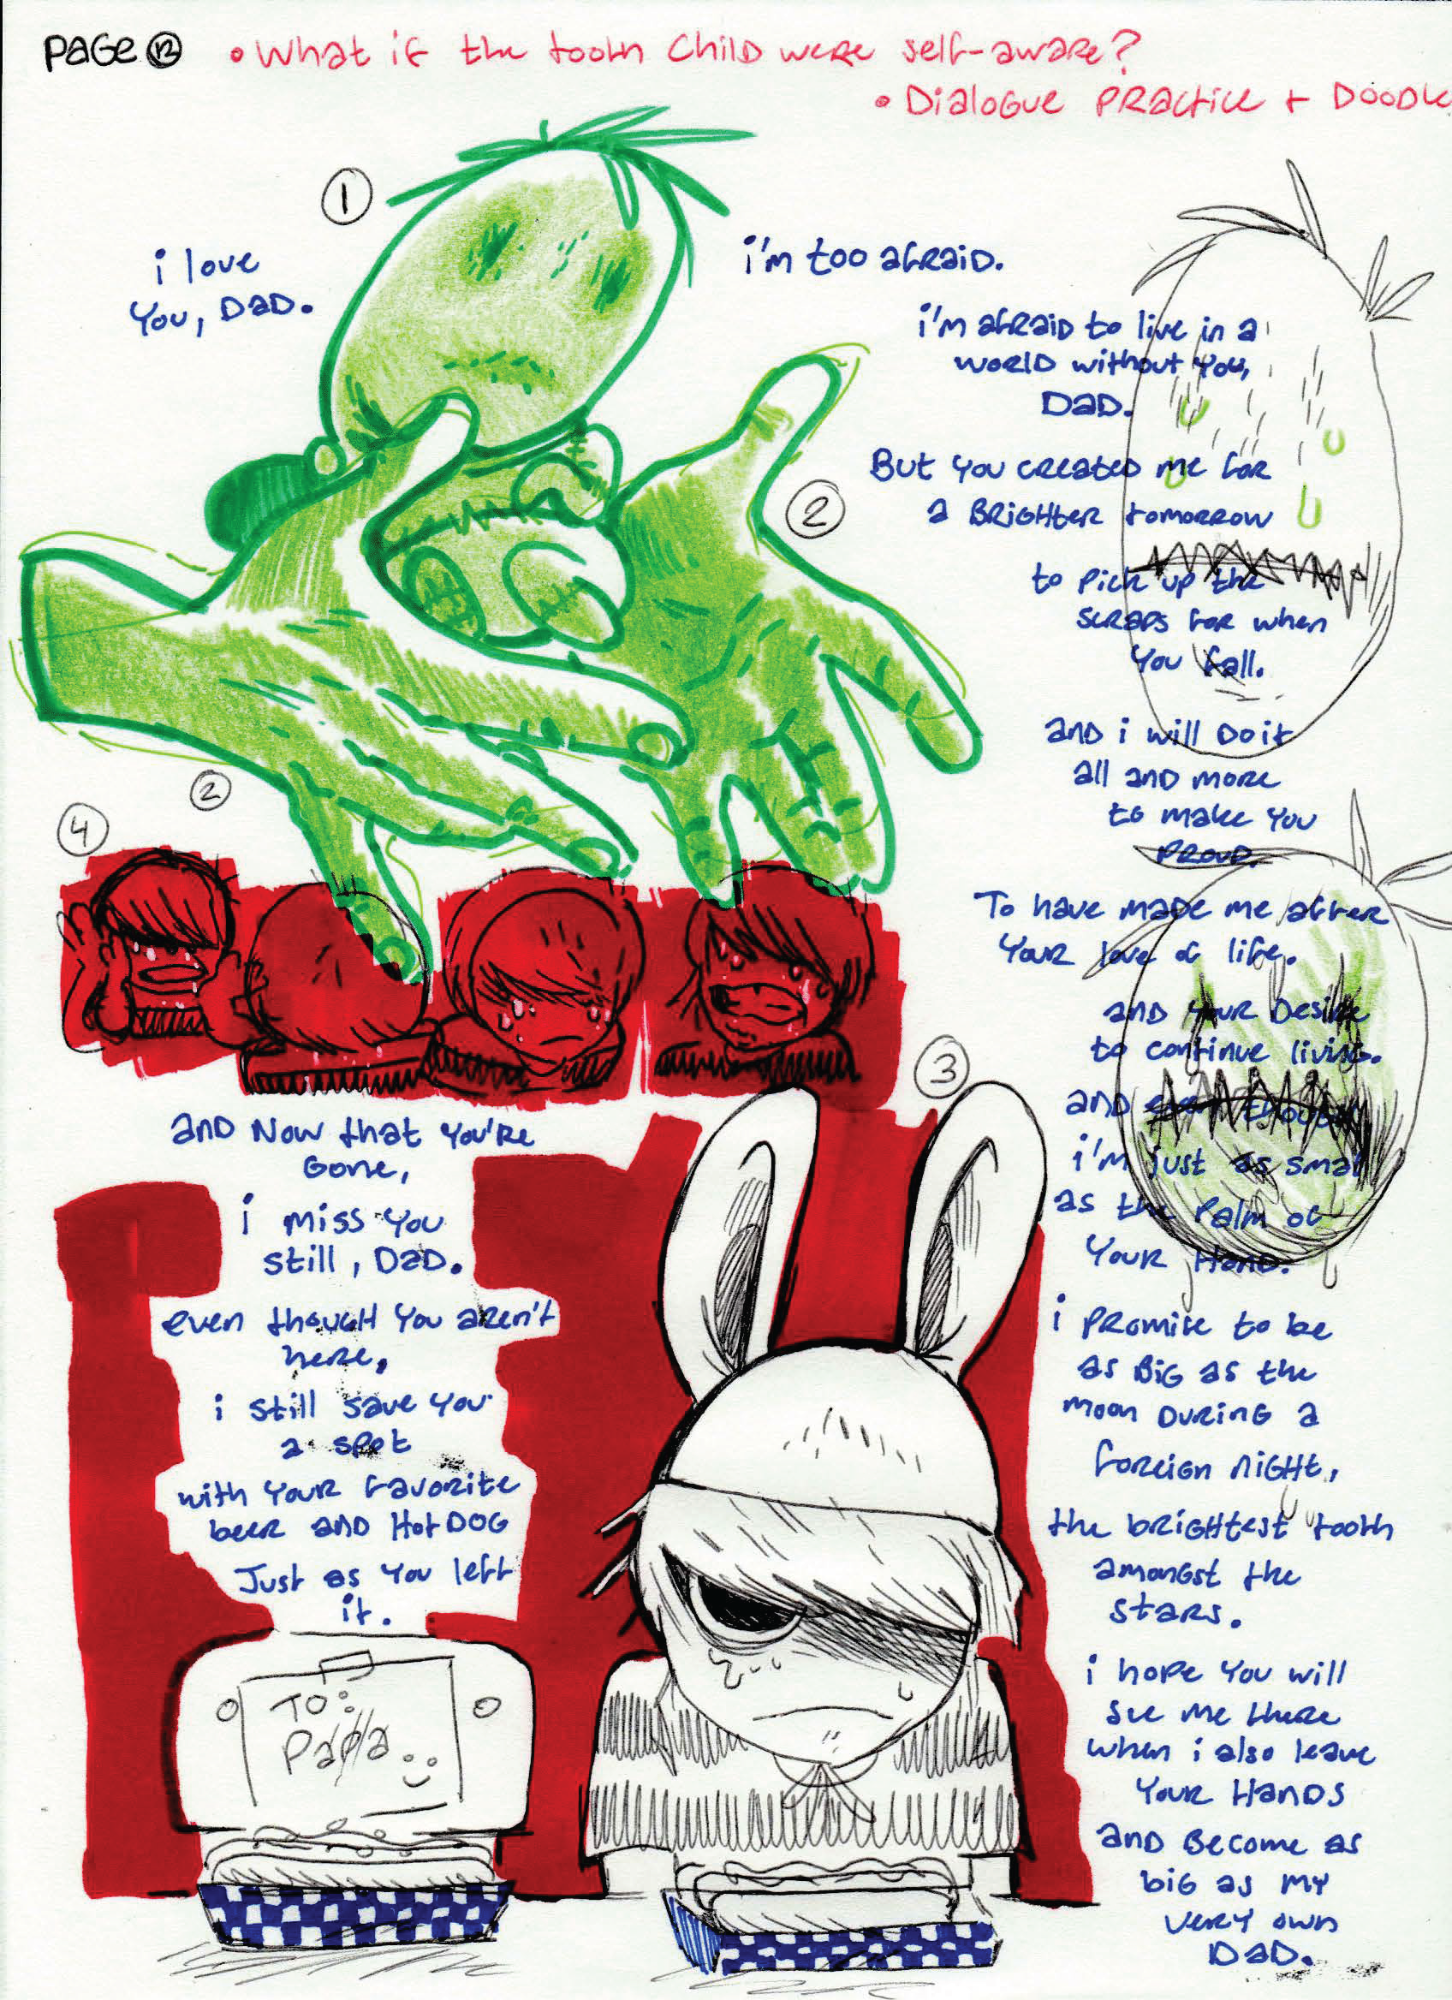 PAGE 12
• What if the tooth child were self-aware?
• Dialogue Practice + Doodle
1
i love
you, Dad.
i'm too afraid.
i'm afraid to live in a
world without you,
Dad.
2
But you created me for
a brighter tomorrow
to pick up the
scraps for when
you fall.
and i will do it
all and more
to make you
proud.
To have made me after
your love of life.
and your desire
to continue living.
and even though
i'm just as small
as the palm of
your hand.
i promise to be
as big as the
moon during a
foreign night,
the brightest tooth
amongst the
stars.
i hope you will
see me there
when i also leave
your hands
and become as
big as my
very own
Dad.
2
4
3
and now that you're
gone,
i miss you
still, Dad.
even though you aren't
here,
i still save you
a spot
with your favorite
beer and hotdog
Just as you left
it.
TO:
Papa